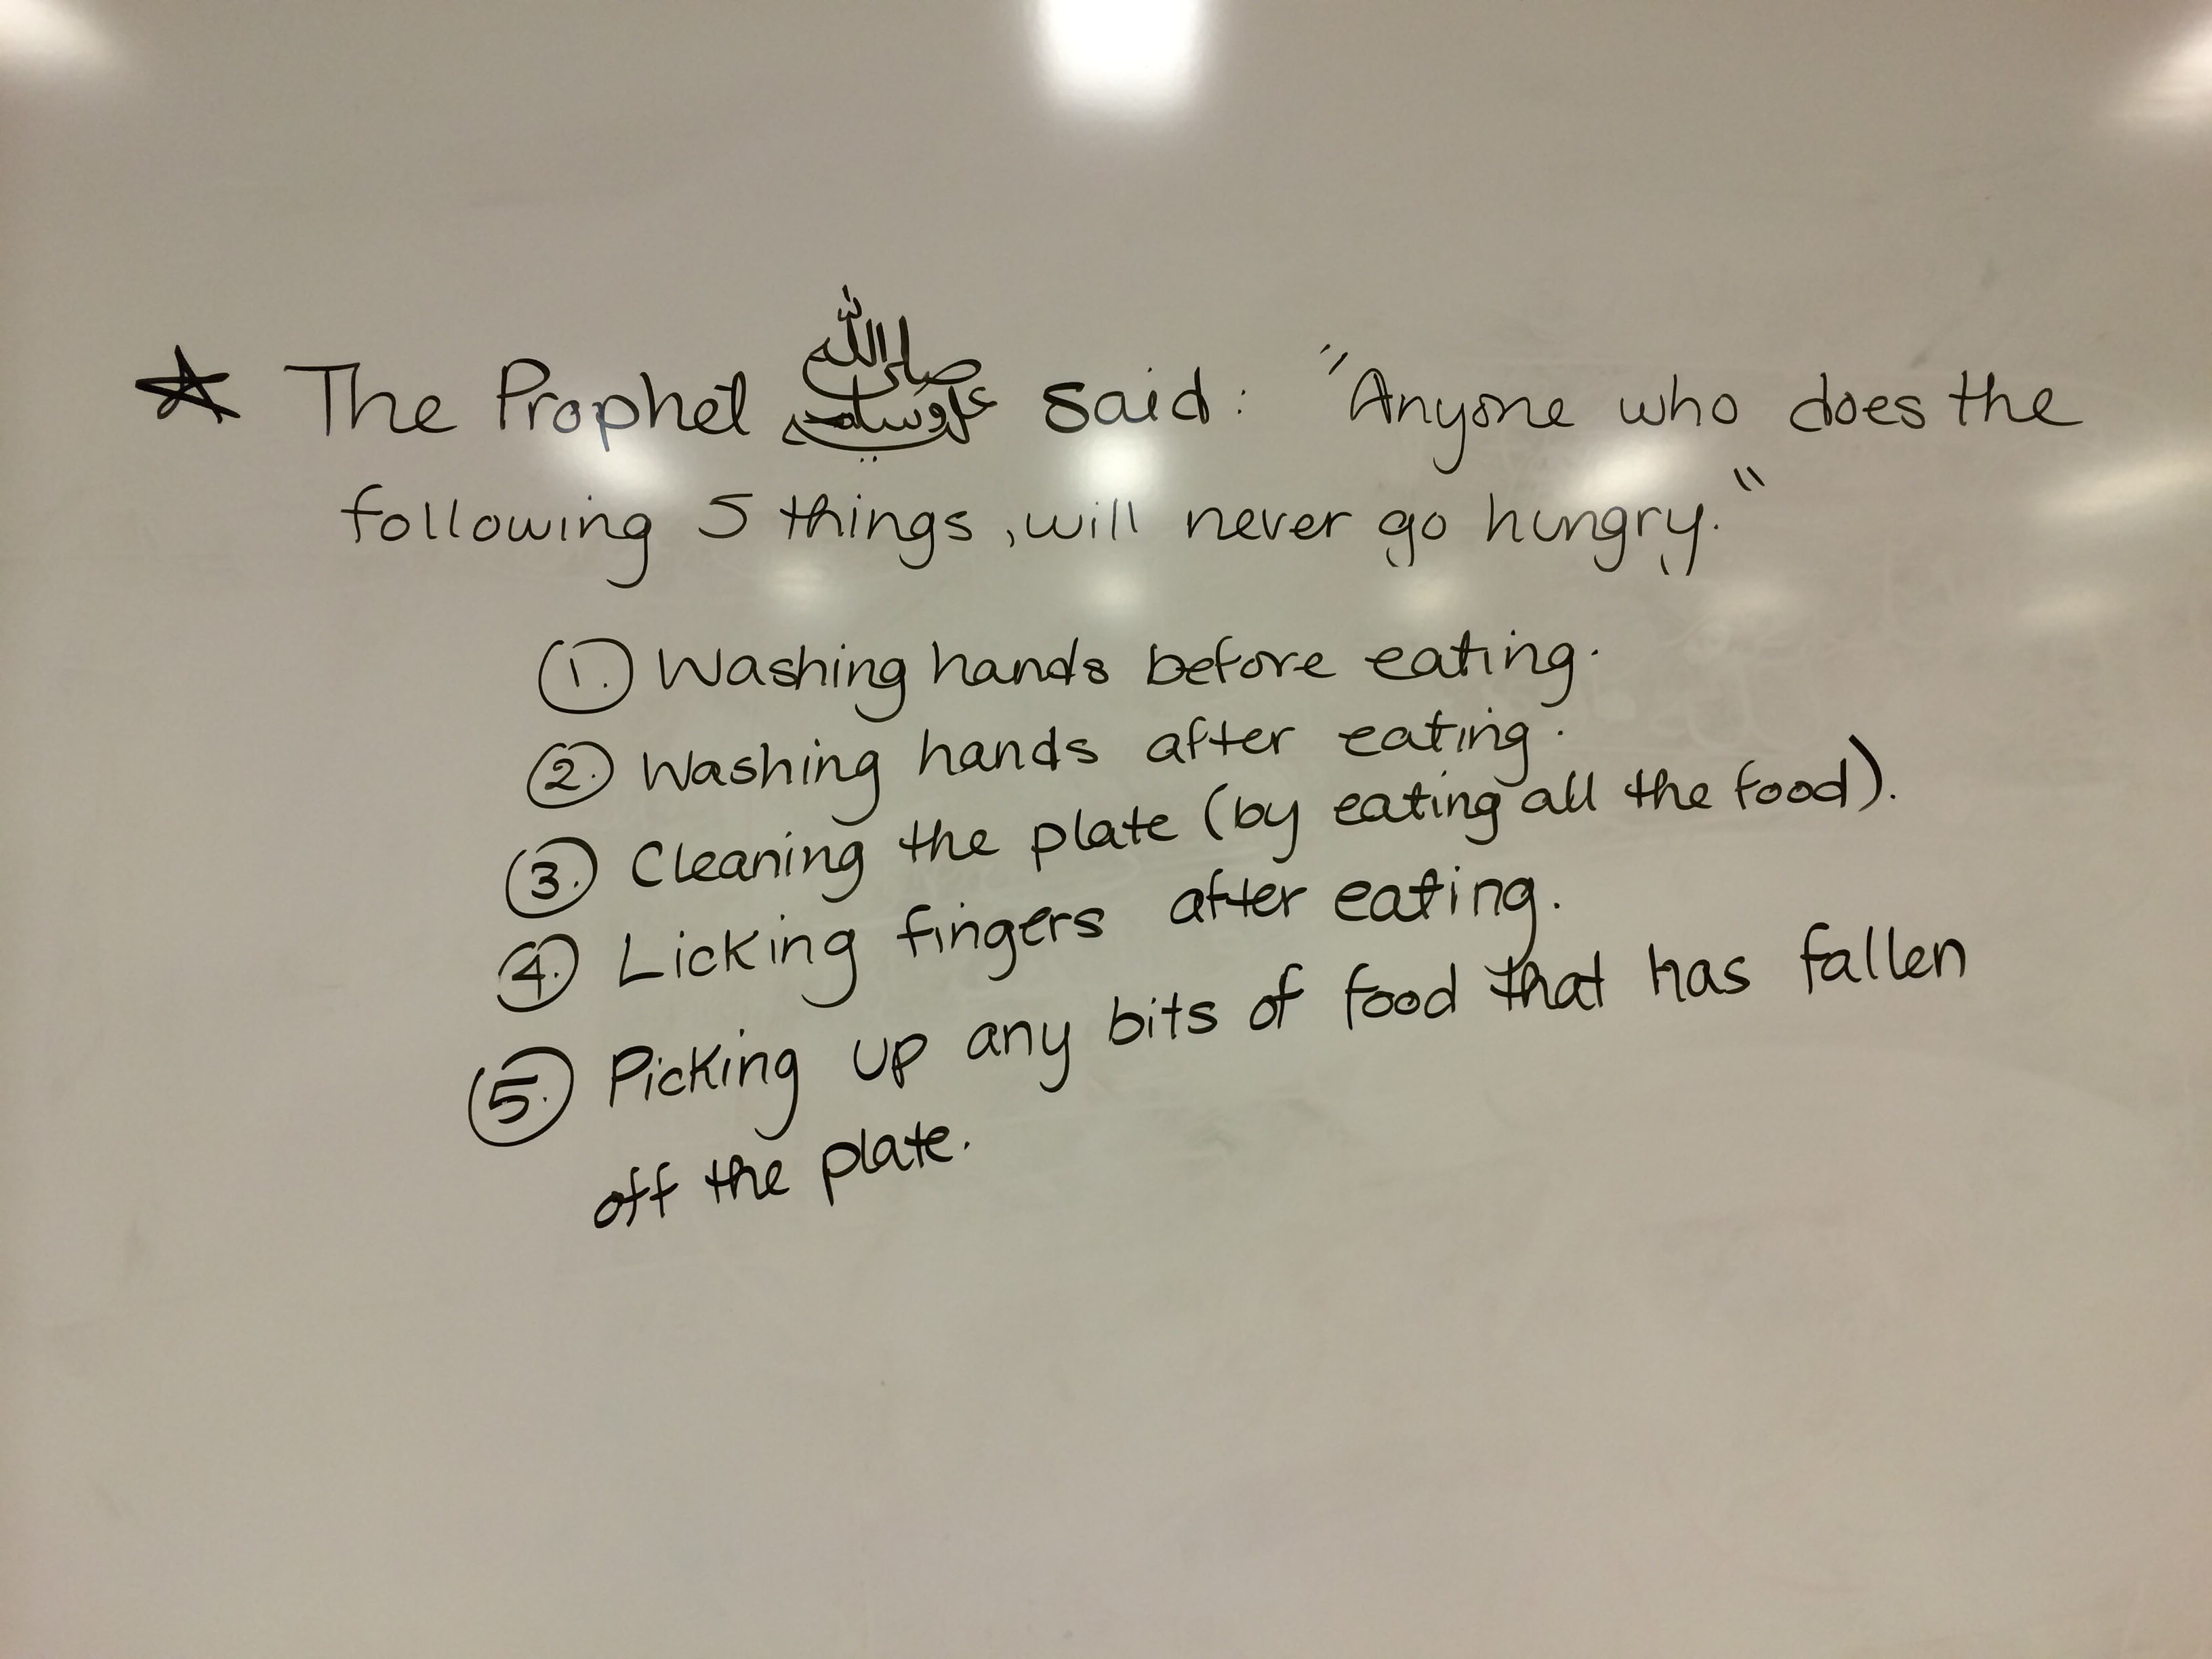 ☆ The Prophet ﷺ said: "Anyone who does the
following 5 things, will never go hungry."
1. Washing hands before eating.
2. Washing hands after eating.
3. Cleaning the plate (by eating all the food).
4. Licking fingers after eating.
5. Picking up any bits of food that has fallen
off the plate.